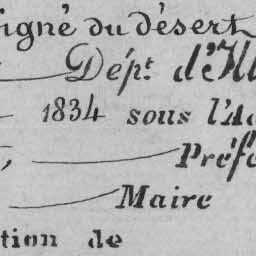 igné du désert
Dépt. d'Ill
1834 sous l'Ad
Préfe
Maire
tion de